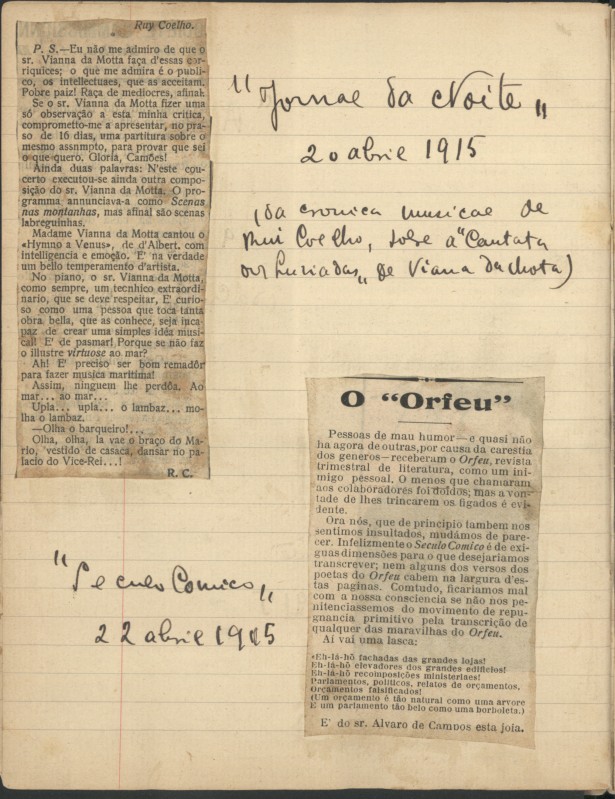 Ruy Coelho.
P. S.—Eu não me admiro de que o
sr. Vianna da Motta faça d'essas cor-
riquices; o que me admira é o publi-
co, os intellectuaes, que as acceitam.
Pobre paiz! Raça de mediocres, afinal.
Se o sr. Vianna da Motta fizer uma
só observação a esta minha critica,
comprometto-me a apresentar, no pra-
so de 16 dias, uma partitura sobre o
mesmo assumpto, para provar que sei
o que quero. Gloria, Camões!
Ainda duas palavras: N'este cou-
certo executou-se ainda outra compo-
sição do sr. Vianna da Motta. O pro-
gramma annunciava-a como Scenas
nas montanhas, mas afinal são scenas
labreguinhas.
Madame Vianna da Motta cantou o
«Hymno a Venus», de d'Albert. com
intelligencia e emoção. E' na verdade
um bello temperamento d'artista.
No piano, o sr. Vianna da Motta,
como sempre, um technico extraordi-
nario, que se deve respeitar, E' curio-
so como uma pessoa que toca tanta
obra bella, que as conhece, seja inca-
paz de crear uma simples idéa musi-
cal! E' de pasmar! Porque se não faz
o illustre virtuose ao mar?
Ah! E' preciso ser bom remador
para fazer musica maritima!
Assim, ninguem lhe perdôa. Ao
mar... ao mar...
Upla... upla... o lambaz... mo-
lha o lambaz.
—Olha o barqueiro!...
Olha, olha, la vae o braço do Ma-
rio, vestido de casaca, dansar no pa-
lacio do Vice-Rei...!
R. C.
"Jornal da Noite"
20 abril 1915
(da cronica musical de
Rui Coelho, sobre a "Cantata
dos Lusiadas" de Viana da Mota)
O "Orfeu"
Pessoas de mau humor—e quasi não
ha agora de outras, por causa da carestia
dos generos—receberam o Orfeu, revista
trimestral de literatura, como um ini-
migo pessoal. O menos que chamaram
aos colaboradores foi doidos; mas a von-
tade de lhes trincarem os figados é evi-
dente.
Ora nós, que de principio tambem nos
sentimos insultados, mudámos de pare-
cer. Infelizmente o Seculo Comico é de exi-
guas dimensões para o que desejariamos
transcrever; nem alguns dos versos dos
poetas do Orfeu cabem na largura d'es-
tas paginas. Comtudo, ficariamos mal
com a nossa consciencia se não nos pe-
nitenciassemos do movimento de repu-
gnancia primitivo pela transcrição de
qualquer das maravilhas do Orfeu.
Aí vai uma lasca:
«Eh-lá-hô fachadas das grandes lojas!
Eh-lá-hô elevadores dos grandes edificios!
Eh-lá-hô recomposições ministeriaes!
Parlamentos, politicos, relatos de orçamentos,
Orçamentos falsificados!
(Um orçamento é tão natural como uma arvore
E um parlamento tão belo como uma borboleta.)
E' do sr. Alvaro de Campos esta joia.
"Seculo Comico"
22 abril 1915